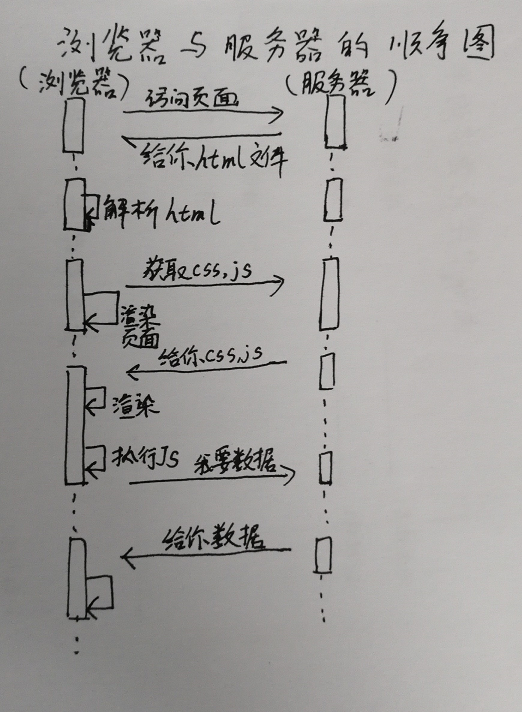 浏览器与服务器的顺序图
(浏览器) (服务器)
访问页面
给你.html文件
解析html
获取css,js
渲染
页面
给你.css,js
渲染
执行JS 我要数据
给你数据